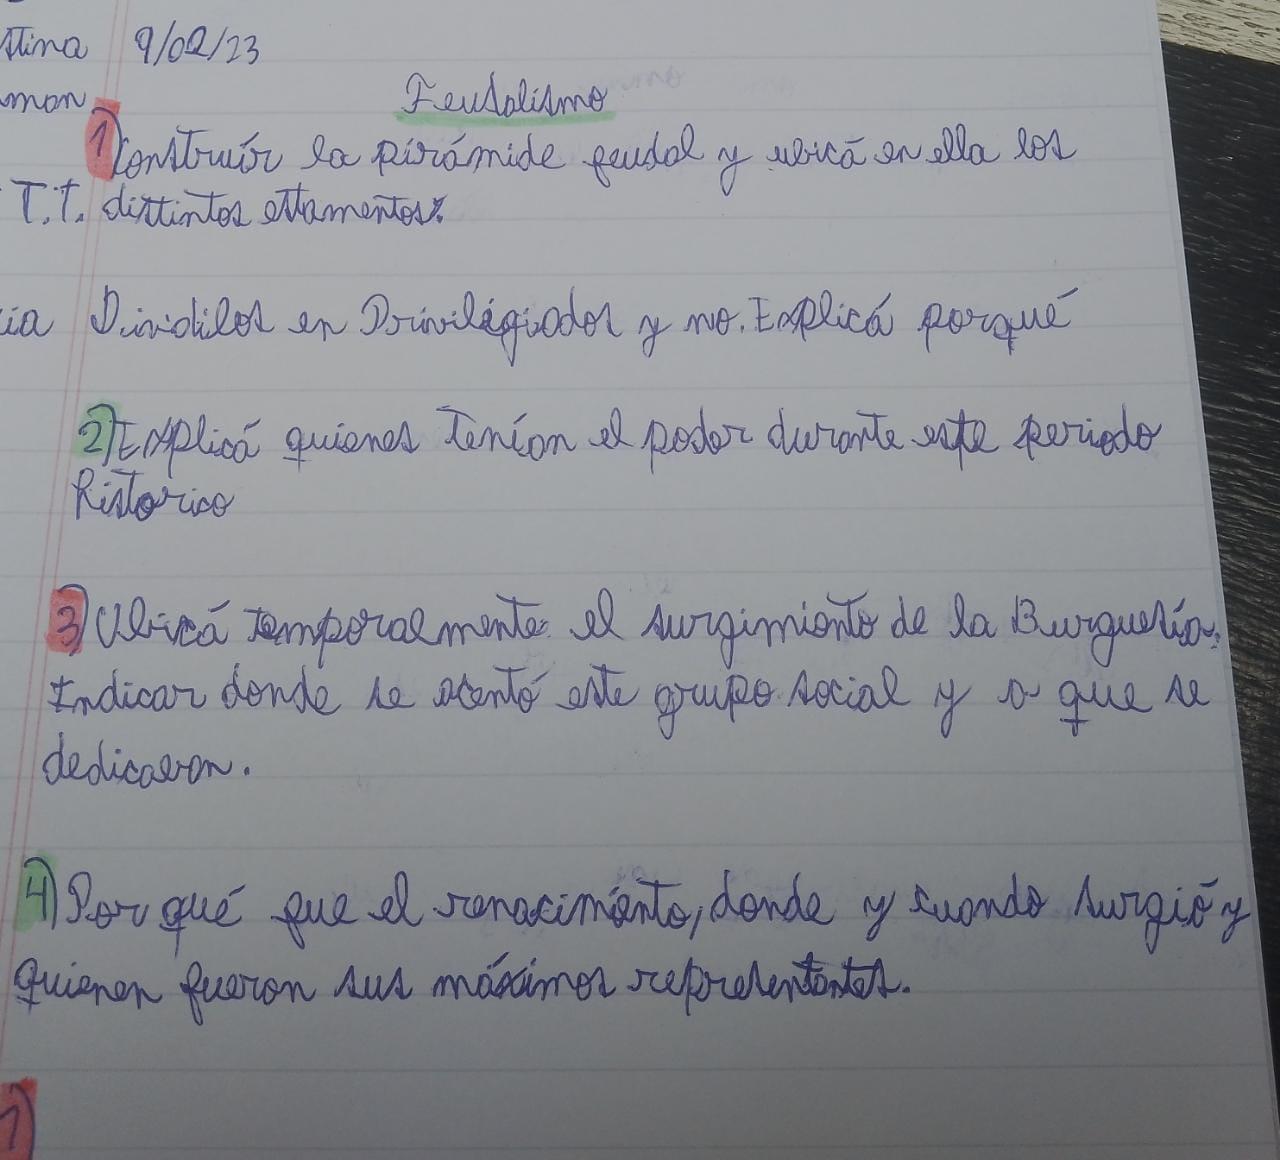 9/02/23
Feudalismo
1) Construír la pirámide feudal y ubicá en ella los
T.T. distintos estamentos.
Dividilos en Privilégiados y no. Explicá porqué
2) Explicá quienes tenían el poder durante este periodo
historico
3) Ubicá temporalmente el surgimiento de la Burguesía.
Indicar donde se asentó este grupo social y a que se
dedicaron.
4) Por qué fue el renacimiento, donde y cuando surgió y
quienen fueron sus máximos representantes.
1)